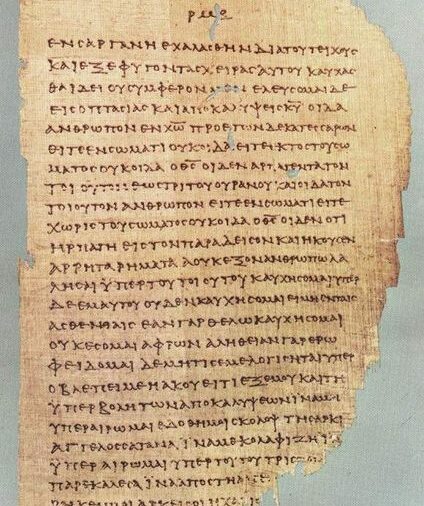 ΕΝϹΑΡΓΑΝΗΕΧΑΛΑϹΘΗΝΔΙΑΤΟΥΤΕΙΧΟΥϹ
ΚΑΙΕΞΕΦΥΓΟΝΤΑϹΧΕΙΡΑϹΑΥΤΟΥΚΑΥΧΑϹ
ΘΑΙΔΕΙΟΥϹΥΜΦΕΡΟΝΜΕΝΕΛΕΥϹΟΜΑΙΔΕ
ΕΙϹΟΠΤΑϹΙΑϹΚΑΙΑΠΟΚΑΛΥΨΕΙϹΚ̅Υ̅ΟΙΔΑ
ΑΝΘΡΩΠΟΝΕΝΧ̅Ω̅ΠΡΟΕΤΩΝΔΕΚΑΤΕϹϹΑΡΩΝ
ΕΙΤΕΕΝϹΩΜΑΤΙΟΥΚΟΙΔΑΕΙΤΕΕΚΤΟϹΤΟΥϹΩ
ΜΑΤΟϹΟΥΚΟΙΔΑΟΘ̅Ϲ̅ΟΙΔΕΝΑΡΠΑΓΕΝΤΑΤΟΝ
ΤΟΙΟΥΤΟΝΕΩϹΤΡΙΤΟΥΟΥΡΑΝΟΥΚΑΙΟΙΔΑΤΟΝ
ΤΟΙΟΥΤΟΝΑΝΘΡΩΠΟΝΕΙΤΕΕΝϹΩΜΑΤΙΕΙΤΕ
ΧΩΡΙϹΤΟΥϹΩΜΑΤΟϹΟΥΚΟΙΔΑΟΘ̅Ϲ̅ΟΙΔΕΝΟΤΙ
ΗΡΠΑΓΗΕΙϹΤΟΝΠΑΡΑΔΕΙϹΟΝΚΑΙΗΚΟΥϹΕΝ
ΑΡΡΗΤΑΡΗΜΑΤΑΑΟΥΚΕΞΟΝΑΝΘΡΩΠΩΛΑ
ΛΗϹΑΙΥΠΕΡΤΟΥΤΟΙΟΥΤΟΥΚΑΥΧΗϹΟΜΑΙΥΠΕΡ
ΔΕΕΜΑΥΤΟΥΟΥΔΕΝΚΑΥΧΗϹΟΜΑΙΕΙΜΗΕΝΤΑΙϹ
ΑϹΘΕΝΕΙΑΙϹΕΑΝΓΑΡΘΕΛΩΚΑΥΧΗϹΟΜΑΙ
ΟΥΚΕϹΟΜΑΙΑΦΡΩΝΑΛΗΘΕΙΑΝΓΑΡΕΡΩ
ΦΕΙΔΟΜΑΙΔΕΜΗΤΙϹΕΜΕΛΟΓΙϹΗΤΑΙΥΠΕΡ
ΟΒΛΕΠΕΙΜΕΗΑΚΟΥΕΙΤΙΕΞΕΜΟΥΚΑΙΤΗ
ΥΠΕΡΒΟΛΗΤΩΝΑΠΟΚΑΛΥΨΕΩΝΙΝΑΜΗ
ΥΠΕΡΑΙΡΩΜΑΙΕΔΟΘΗΜΟΙϹΚΟΛΟΨΤΗϹΑΡΚΙ
ΑΓΓΕΛΟϹϹΑΤΑΝΑΙΝΑΜΕΚΟΛΑΦΙΖΗΙ
ΥΠΕΡΑΙΡΩΜΑΙΥΠΕΡΤΟΥΤΟΥΤΡΙϹ
ΠΑΡΕΚΑΛΕϹΑΙΝΑΑΠΟϹΤΗ